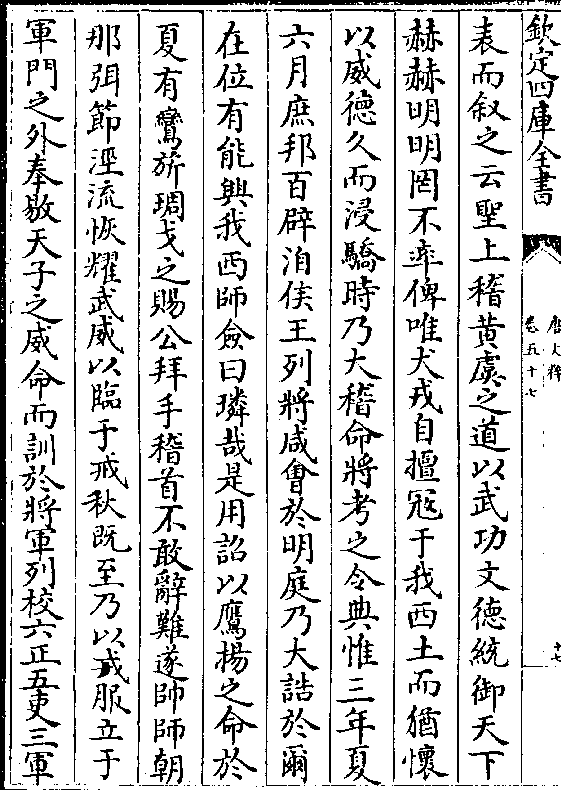 欽定四庫全書
唐文粹
卷五十七
十七
表而叙之云聖上稽黄虞之道以武功文德統御天下
赫赫明明罔不率俾唯犬戎自擅冦于我西土而猶懷
以威德久而浸驕時乃大稽命將考之令典惟三年夏
六月庶邦百辟洎侯王列將咸會於明庭乃大誥於爾
在位有能興我西師僉曰璘哉是用詔以鷹揚之命於
夏有鸞旂琱戈之賜公拜手稽首不敢辭難遂帥師朝
那弭節涇流恢耀武威以臨于戒秋既至乃以戎服立于
軍門之外奉敭天子之威命而訓於將軍列校六正五吏三軍